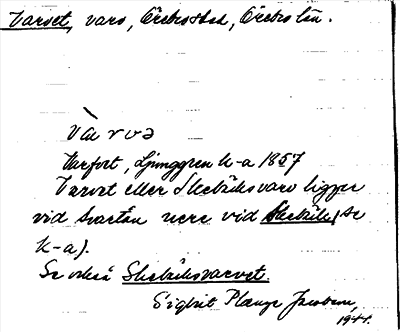 Varvet, varv, Örebro stad, Örebro län.
Vàrvə
Varfvet, Ljunggren k-a 1857
Varvet eller Skebäcksvarv ligger
vid Svartån nere vid Skebäck (se
k-a).
Se också Skebäcksvarvet.
Sigbrit Plænge Jacobson
1944.